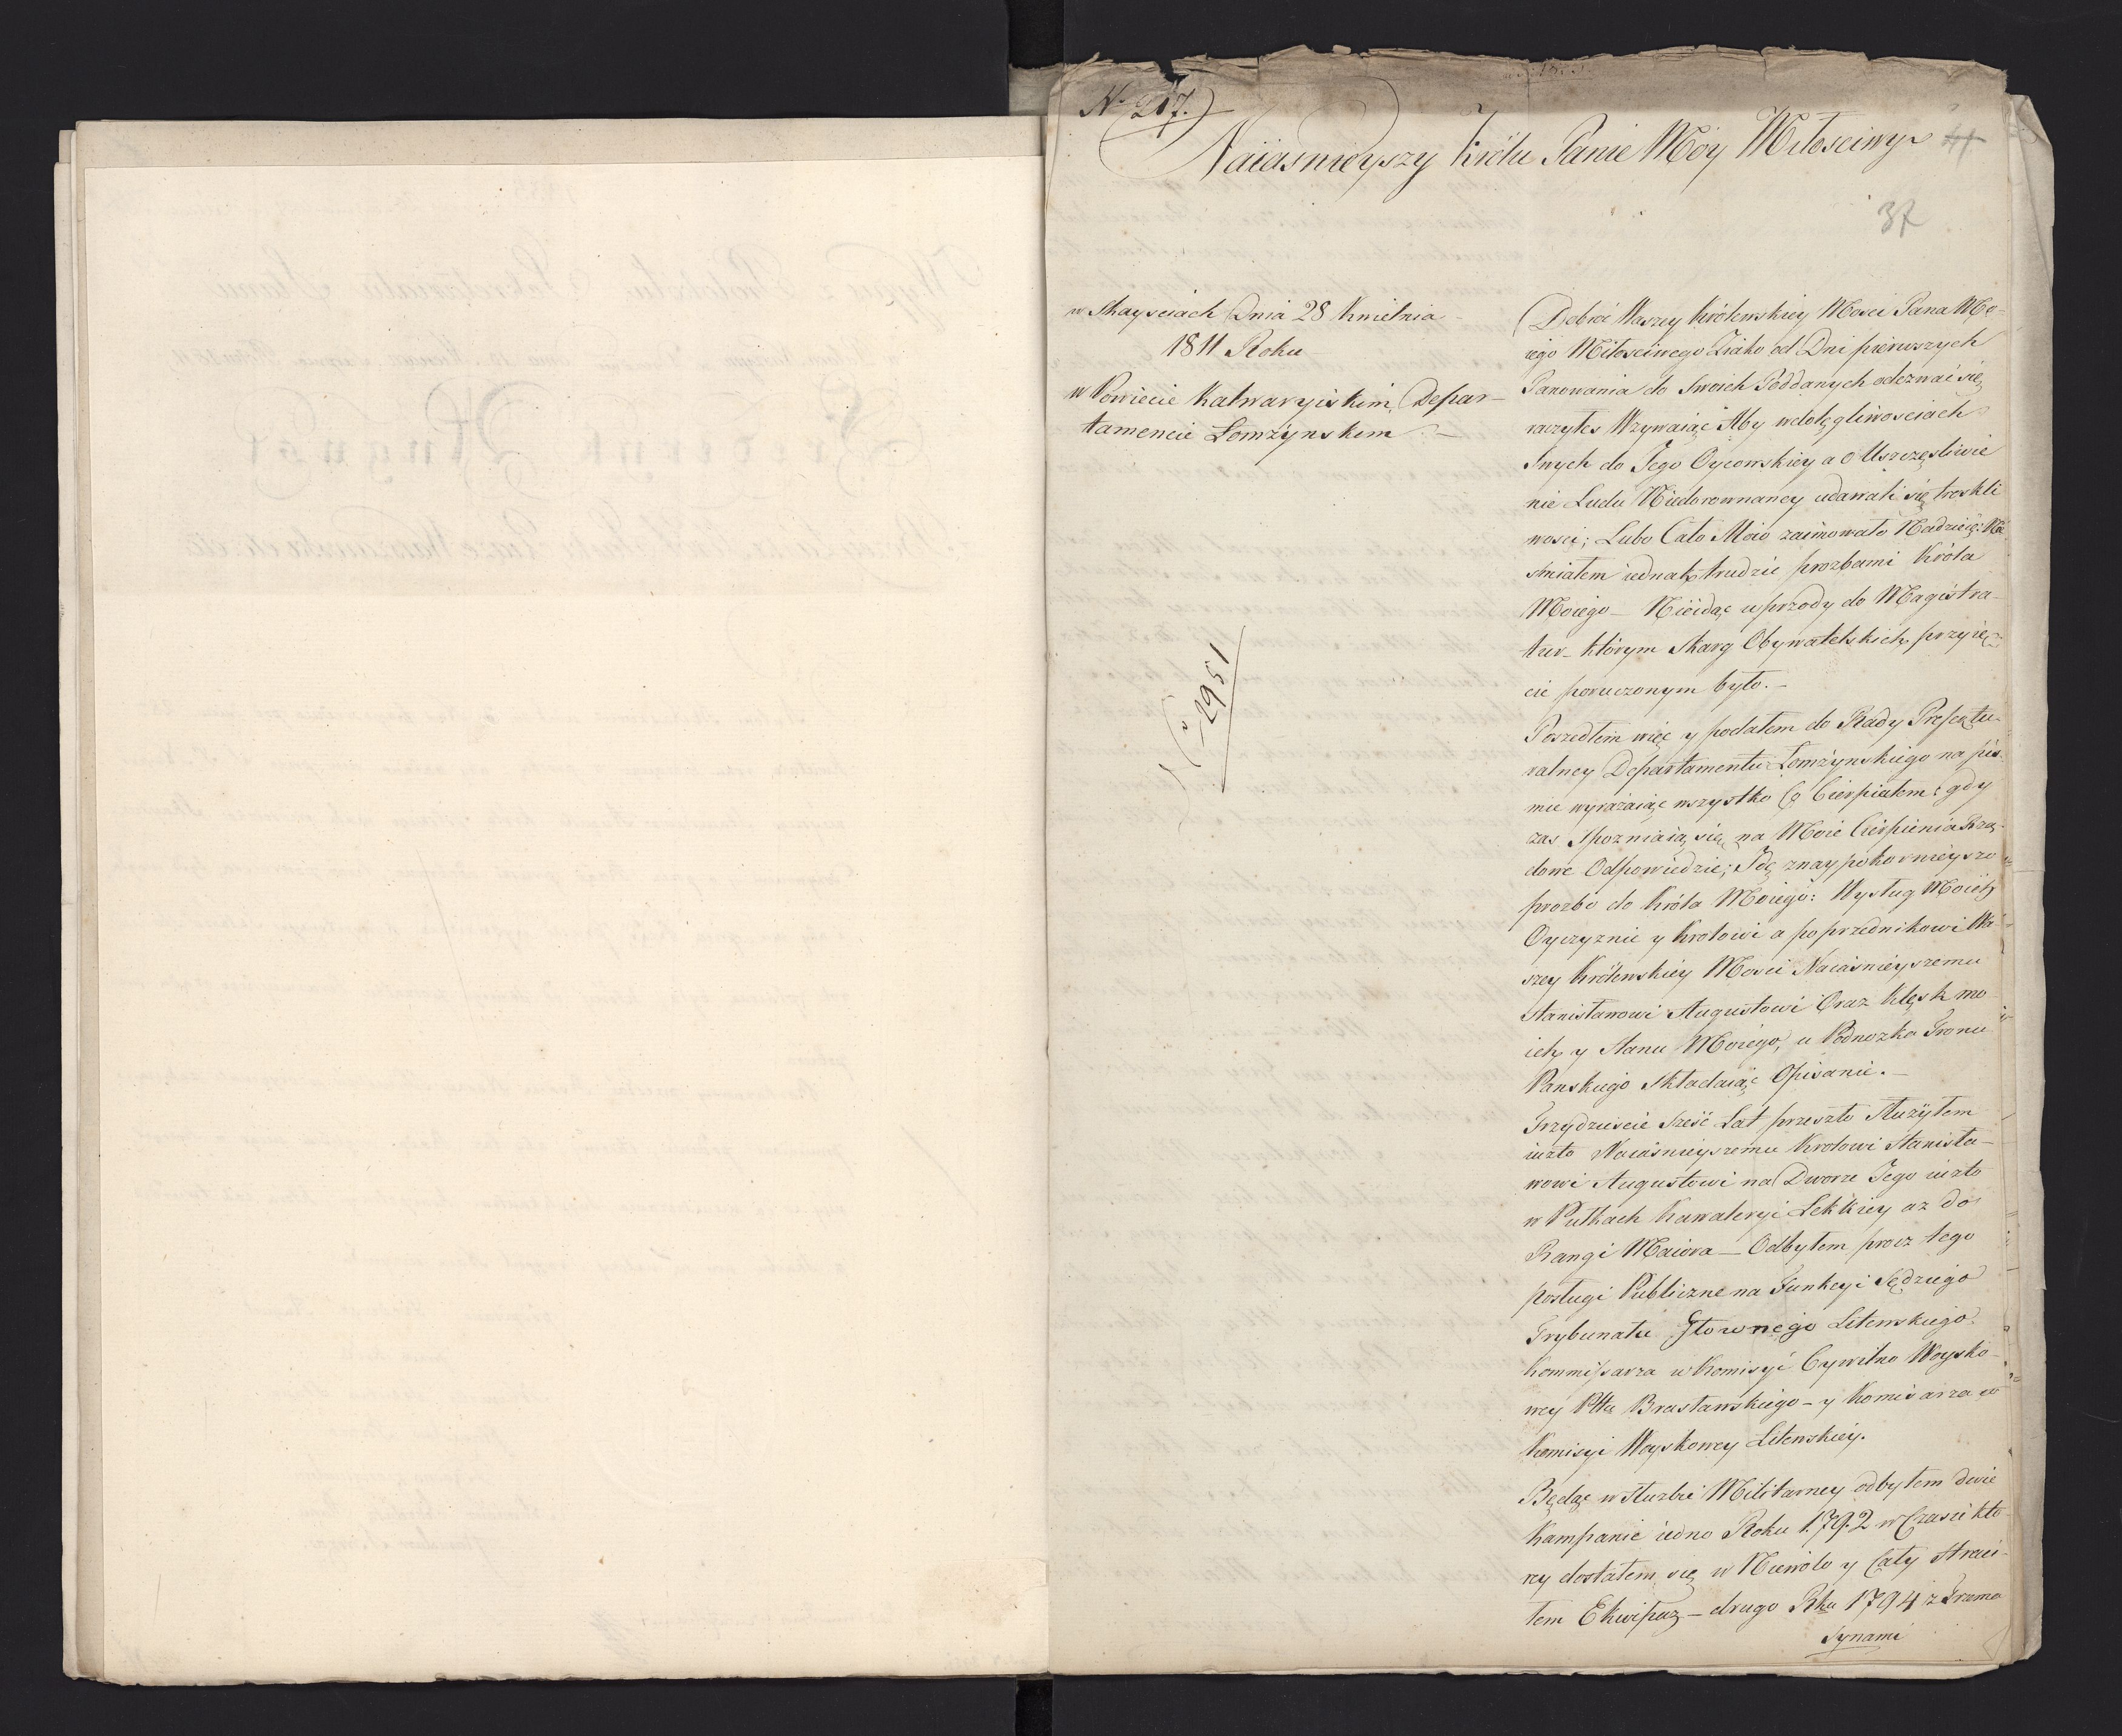 N. 217.
Naiasnieyszy Królu Panie Móy Miłosciwy
41
37
w Skaysciach Dnia 28 Kwietnia
1811 Roku
w Powiecie Kalwaryiskim, Depar-
tamencie Łomżynskim
2951
Dobroć Waszey Królewskiey Mosci Pana Mo-
iego Miłosciwego Ziako od Dni pierwszych
Panowania do Swoich Poddanych odezwać się
raczyłeś Wzywaiąc Aby wdolęgliwosciach
Swych do Jego Oycowskiey a o Uszczęsliwie
nie Ludu Niedorownaney udawali się troskli
wosci; Lubo Cało Moio zaimowało Nadzieię: Nie
smiałem iednak trudzić prozbami Króla
Moiego – Nieidąc uprzody do Magistra-
tur – którym Skarg Obywatelskich przyię-
cie poruczonym było. –
Poszedłem więc y podałem do Rady Prefektu-
ralney Departamentu Łomżynskiego na pis-
mie wyrażaiąc wszystko Co Cierpiałem: gdy
zas Spozniaią się na Moie Cierpienia Rzą-
dowe Odpowiedzie; Idę znaypokornieyszo
prozbo do Króla Moiego: Wysług Moich
Oyczyznie y Krolowi a poprzednikowi Wa
szey Królewskiey Mosci Naiasnieyszemu
Stanisławowi Augustowi Oraz klęsk mo
ich y Stanu Moiego, u Podnozka Tronu
Panskiego Składaiąc Opisanie. –
Trzydziescie Sześć Lat przeszło Służyłem
iużto Naiasnieyszemu Krolowi Stanisła-
wowi Augustowi na Dworze Jego iużto
w Pułkach Kawaleryi Lekkiey aż do
Rangi Maiora – Odbyłem procz tego
posługi Publiczne na Funkcyi Sędziego
Trybunału Głownego Litewskiego
Kommissarza w Komisyi Cywilno Woysko-
wey Pttu Brasławskiego – y Komisarza w
Komisyi Woyskowey Litewskiey.
Będąc w Służbie Militarney odbyłem dwie
Kampanie iedno Roku 1792 w Czasie kto
rey dostałem się w Niewolo y Cały Straci-
łem Ekwipaz – drugo Rku 1794 z Trzema
Synami